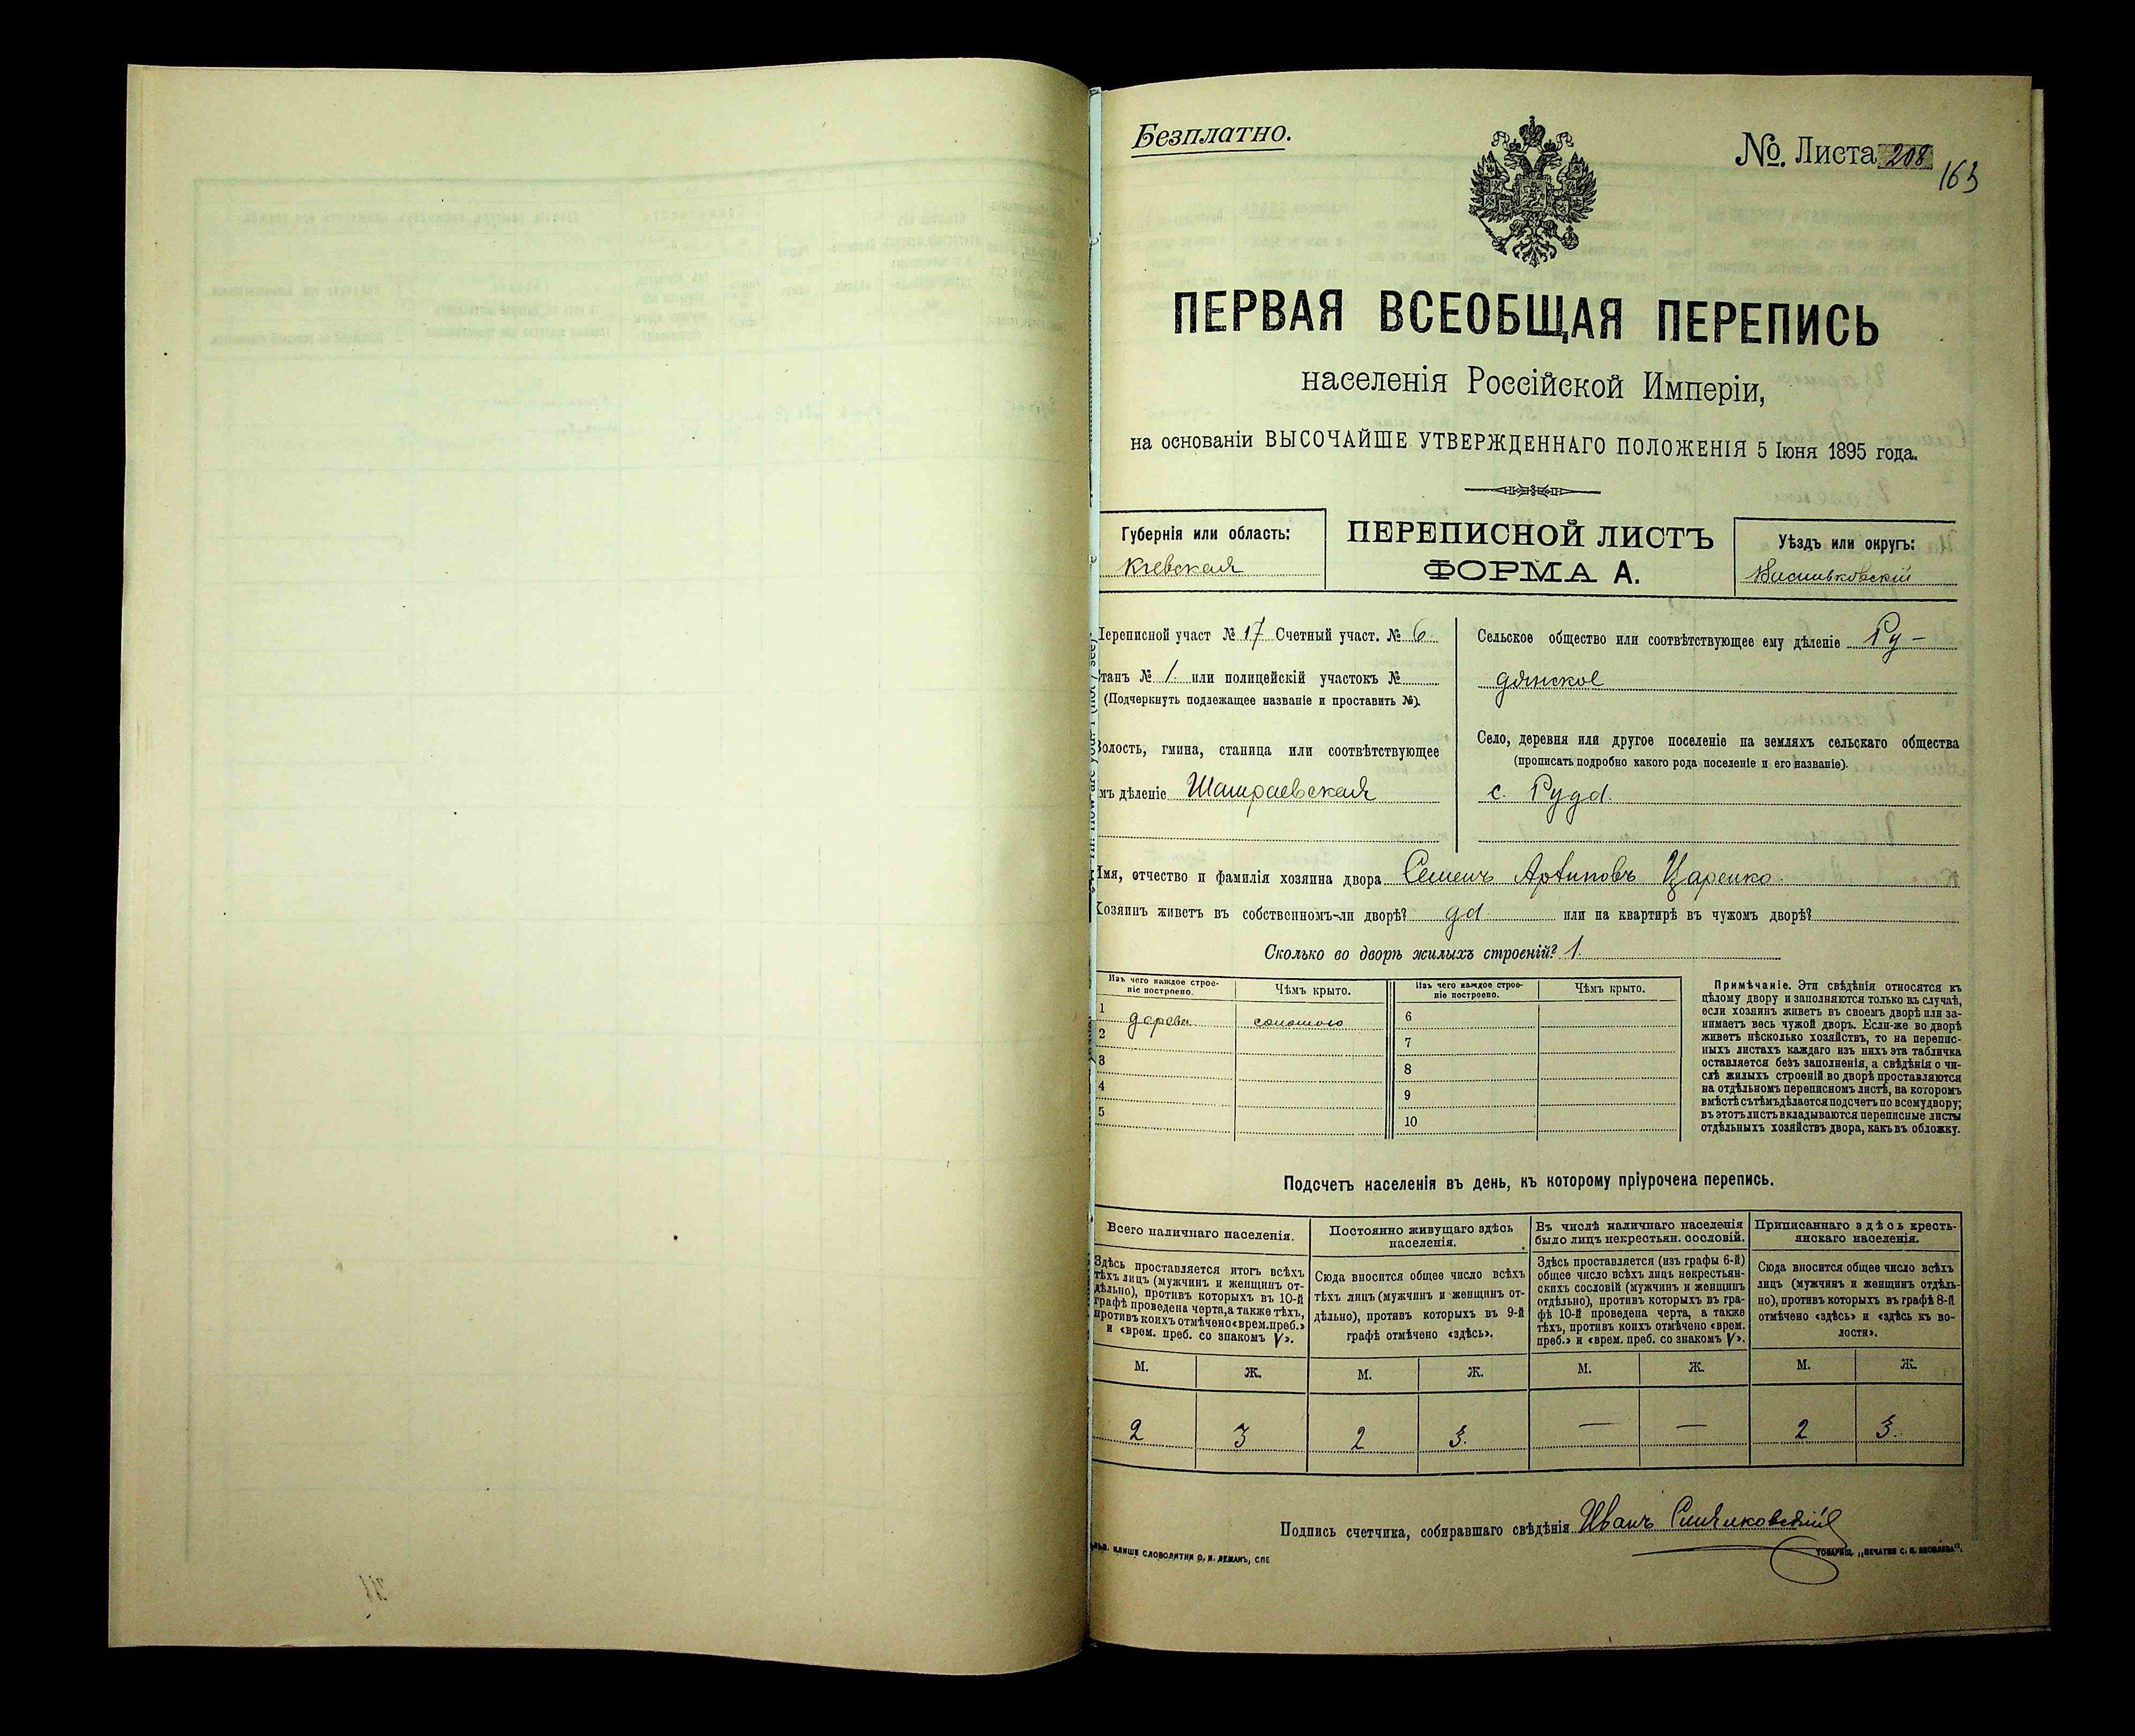 Безплатно.
№. Листа 208
163
ПЕРВАЯ ВСЕОБЩАЯ ПЕРЕПИСЬ
населенія Россійской Имперіи,
на основаніи ВЫСОЧАЙШЕ УТВЕРЖДЕННАГО ПОЛОЖЕНІЯ 5 Іюня 1895 года.
Губернія или область:
Кіевская
ПЕРЕПИСНОЙ ЛИСТЪ
ФОРМА А.
Уѣздъ или округъ:
Васильковскій
Переписной участ № 17 Счетный участ. № 6
Станъ № 1 или полицейскій участокъ №
(Подчеркнуть подлежащее названіе и проставить №).
Волость, гмина, станица или соотвѣтствующее
имъ дѣленіе Шамраевская
Сельское общество или соотвѣтствующее ему дѣленіе Ру-
дянское
Село, деревня или другое поселеніе на земляхъ сельскаго общества
(прописать подробно какого рода поселеніе и его названіе).
с. Руда
Имя, отчество и фамилія хозяина двора Семенъ Царенко
Хозяинъ живетъ въ собственномъ-ли дворѣ? да или на квартирѣ въ чужомъ дворѣ?
Сколько во дворѣ жилыхъ строеній? 1
Изъ чего каждое строе-
ніе построено.
Чѣмъ крыто.
Изъ чего каждое строе-
ніе построено.
Чѣмъ крыто.
1 дерева соломою
2
3
4
5
6
7
8
9
10
Примѣчаніе. Эти свѣдѣнія относятся къ
цѣлому двору и заполняются только въ случаѣ,
если хозяинъ живетъ въ своемъ дворѣ или за-
нимаетъ весь чужой дворъ. Если-же во дворѣ
живетъ нѣсколько хозяйствъ, то на перепис-
ныхъ листахъ каждаго изъ нихъ эта табличка
оставляется безъ заполненія, а свѣдѣнія о чи-
слѣ жилыхъ строеній во дворѣ проставляются
на отдѣльномъ переписномъ листѣ, на которомъ
вмѣстѣ съ тѣмъ дѣлается подсчетъ по всему двору;
въ этотъ листъ вкладываются переписные листы
отдѣльныхъ хозяйствъ двора, какъ въ обложку.
Подсчетъ населенія въ день, къ которому пріурочена перепись.
Всего наличнаго населенія.
Здѣсь проставляется итогъ всѣхъ
тѣхъ лицъ (мужчинъ и женщинъ от-
дѣльно), противъ которыхъ въ 10-й
графѣ проведена черта, а также тѣхъ,
противъ коихъ отмѣчено «врем. преб.»
и «врем. преб. со знакомъ V».
Постоянно живущаго здѣсь
населенія.
Сюда вносится общее число всѣхъ
тѣхъ лицъ (мужчинъ и женщинъ от-
дѣльно), противъ которыхъ въ 9-й
графѣ отмѣчено «здѣсь».
Въ числѣ наличнаго населенія
было лицъ некрестьян. сословій.
Здѣсь проставляется (изъ графы 6-й)
общее число всѣхъ лицъ некрестьян-
скихъ сословій (мужчинъ и женщинъ
отдѣльно), противъ которыхъ въ гра-
фѣ 10-й проведена черта, а также
тѣхъ, противъ коихъ отмѣчено «врем.
преб.» и «врем. преб. со знакомъ V».
Приписаннаго здѣсь кресть-
янскаго населенія.
Сюда вносится общее число всѣхъ
лицъ (мужчинъ и женщинъ отдѣль-
но), противъ которыхъ въ графѣ 8-й
отмѣчено «здѣсь» и «здѣсь къ во-
лости».
М. Ж. М. Ж. М. Ж. М. Ж.
2 3 2 3. — — 2 3.
Подпись счетчика, собиравшаго свѣдѣнія Иванъ
КЛИШЕ СЛОВОЛИТНИ О. И. ЛЕМАНЪ, СПБ
ТОВАРИЩ. „ПЕЧАТНЯ С. П. ЯКОВЛЕВА“.